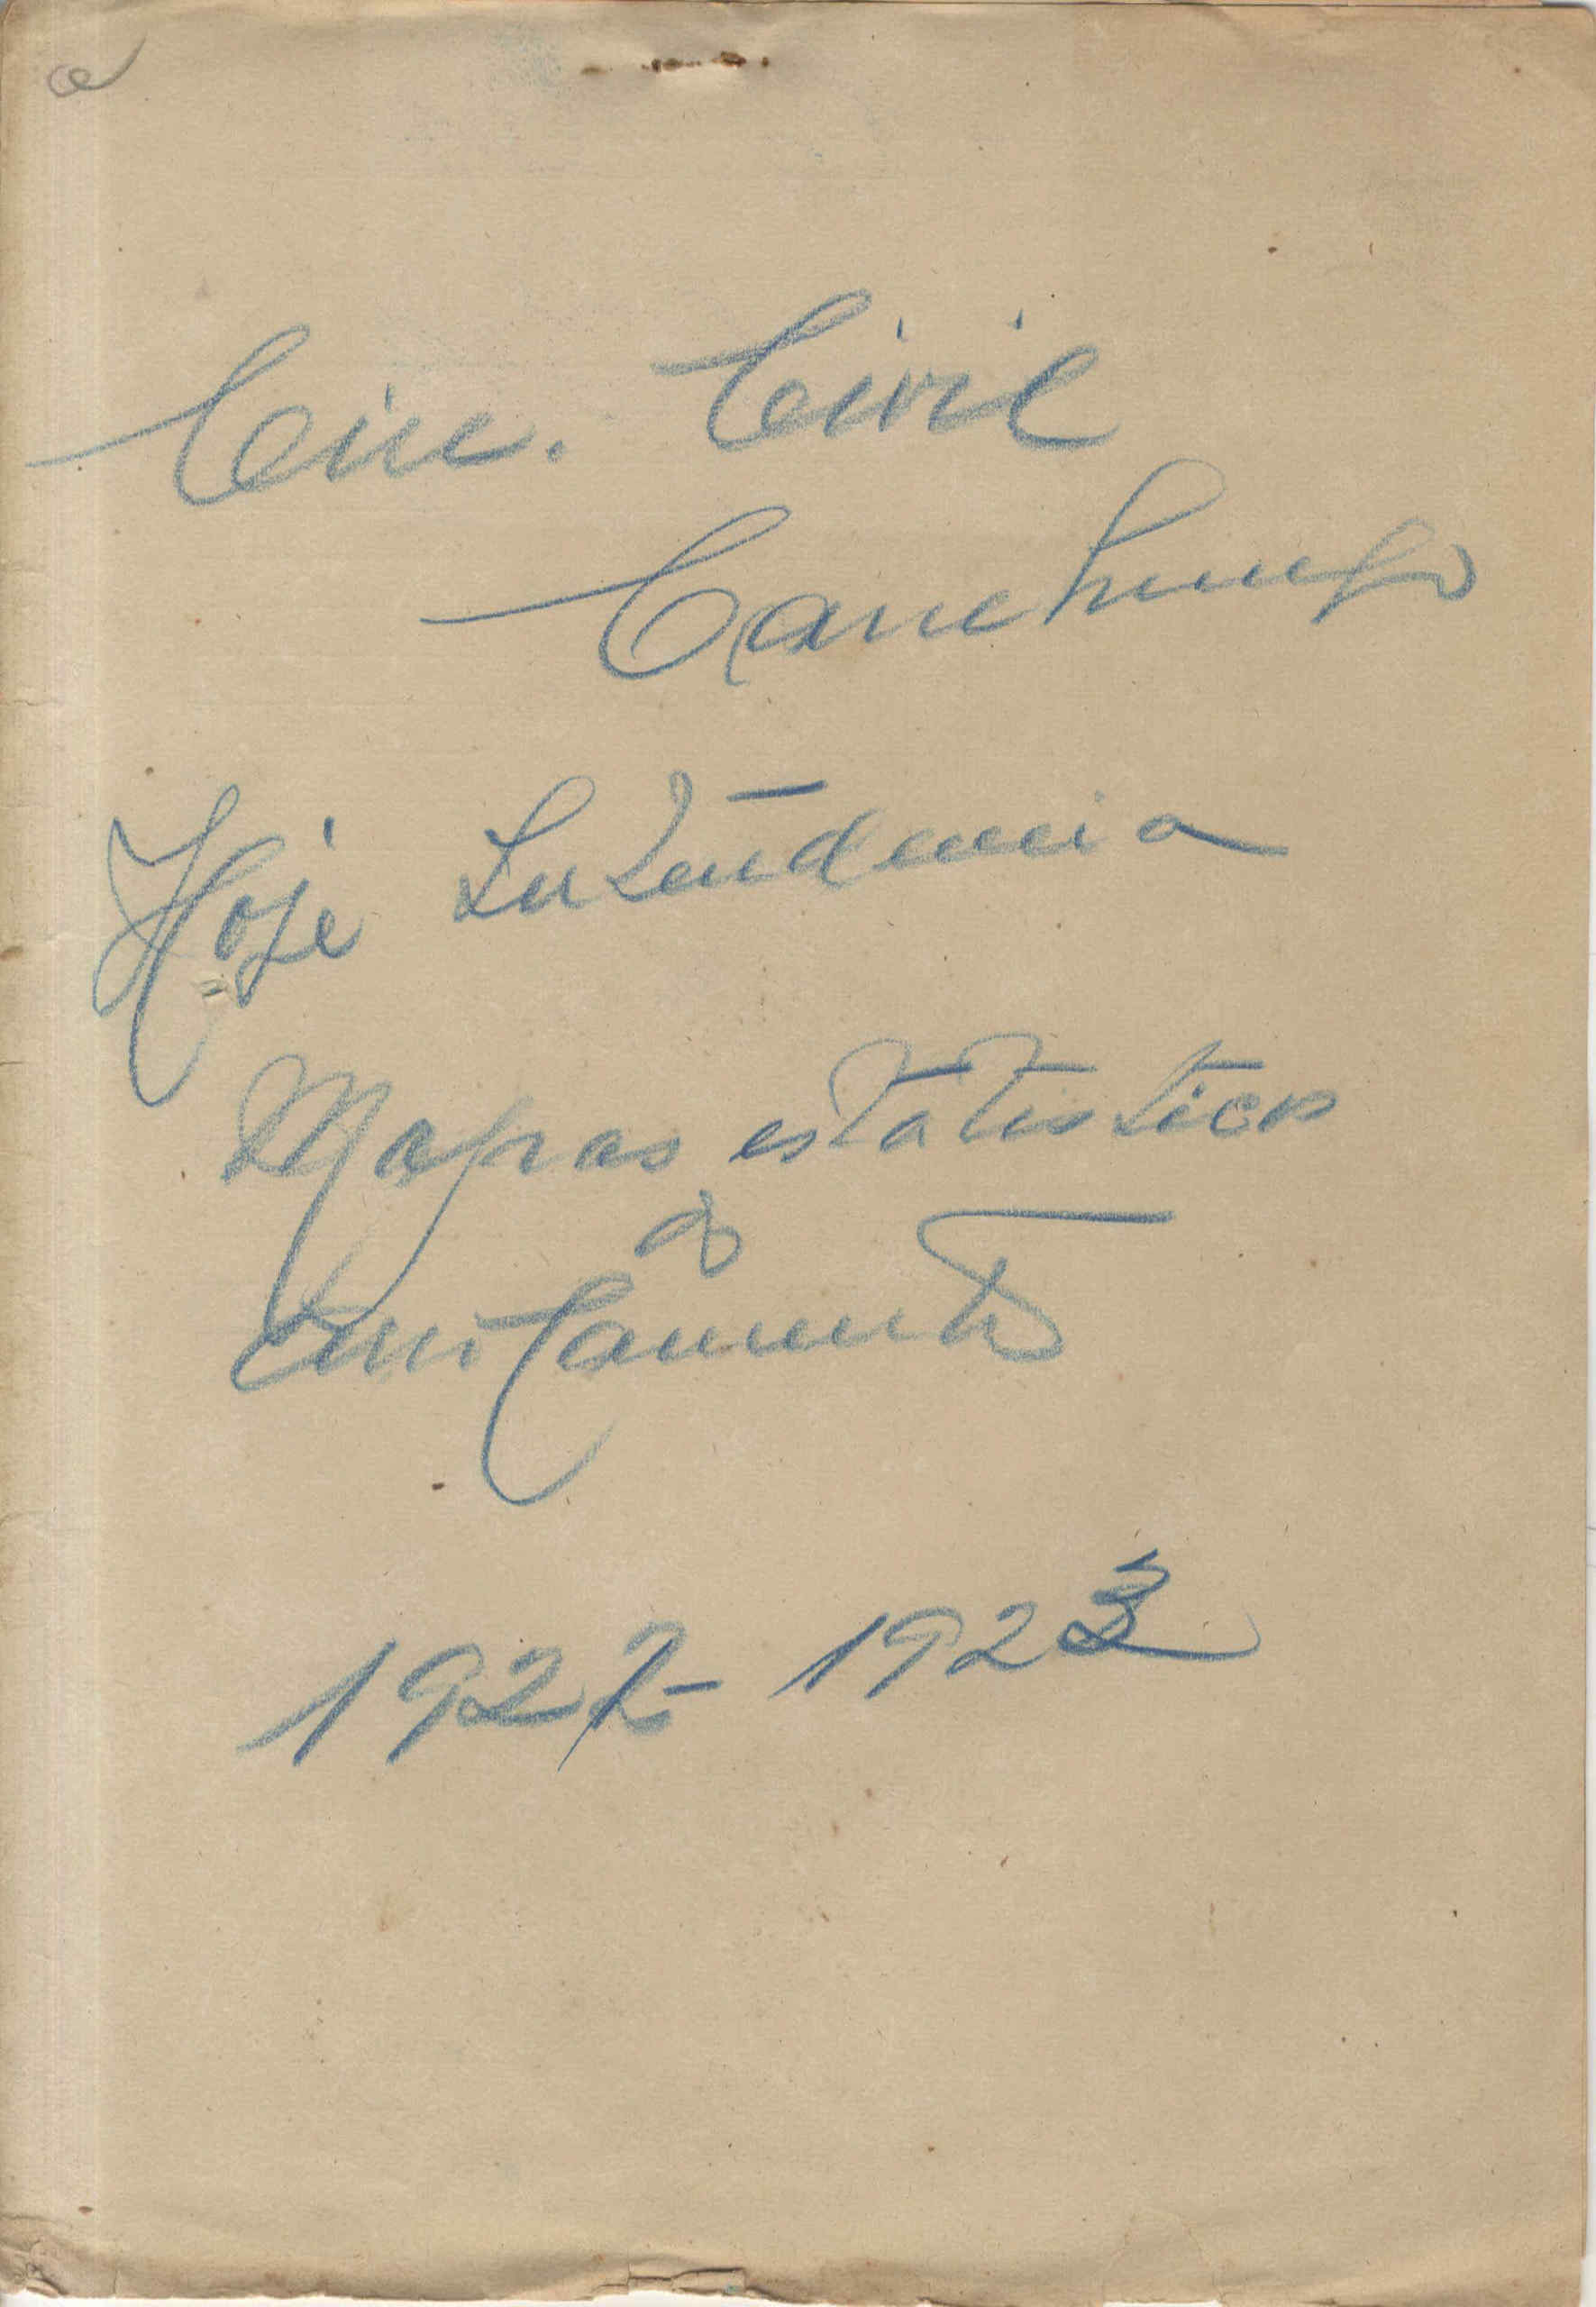 Circ. Civil
Canchungo
Hoje Intendencia
Mapas estatisticos
do
1922 - 1923